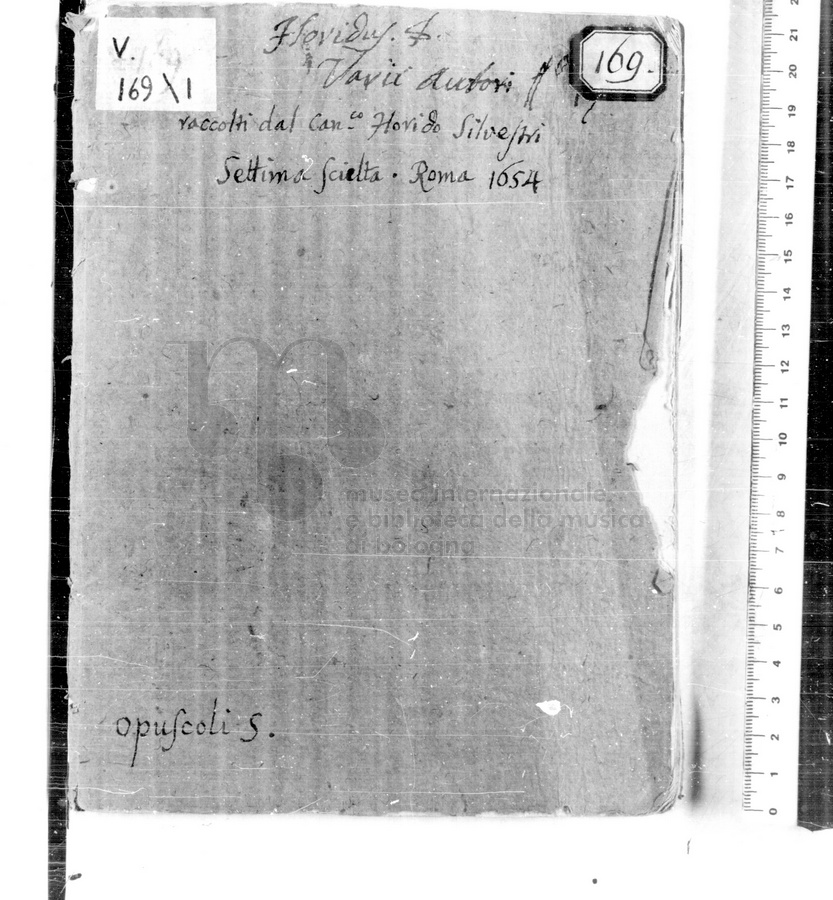 V.
169 \ 1
169.
Floridus.
Varii Autori
raccolti dal Can.co Florido Silvestri
Settima scielta. Roma 1654
museo internazionale
e biblioteca della musica
di bologna
opuscoli 5.
21
20
19
18
17
16
15
14
13
12
11
10
9
8
7
6
5
4
3
2
1
0